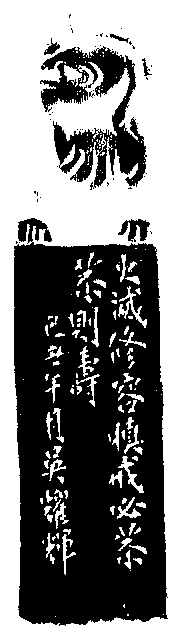 火滅修容慎戒必恭
恭則壽
己丑午月吳耀輝